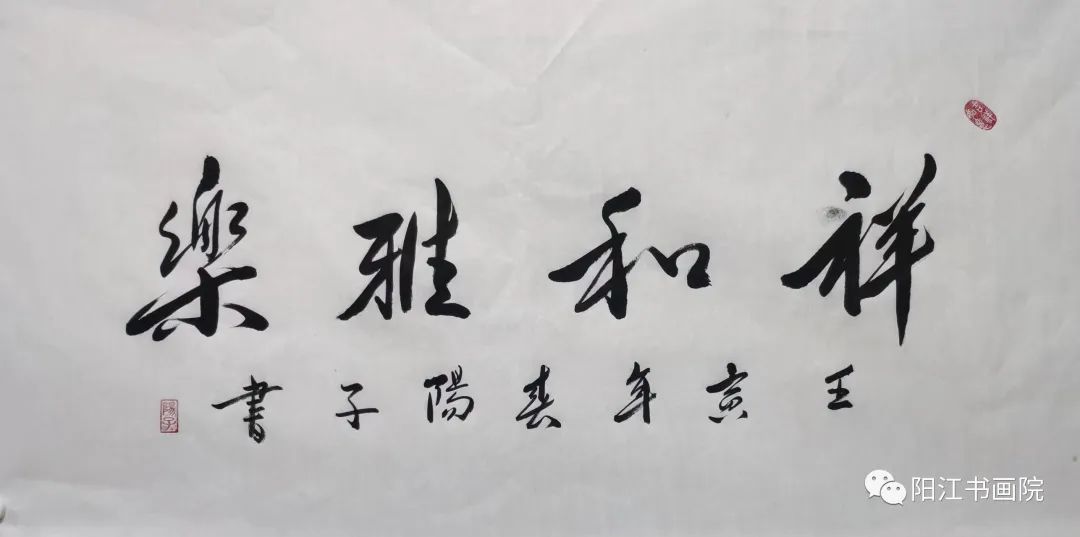 祥和雅樂
壬寅年春陽子書
陽子
阳江书画院